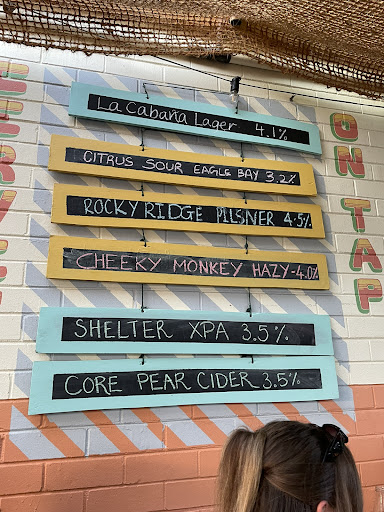 La Cabaña Lager 4.1%
CITRUS SOUR EAGLE BAY 3.2%
ROCKY RIDGE PILSNER 4.5%
CHEEKY MONKEY HAZY-4.0%
SHELTER XPA 3.5%
CORE PEAR CIDER 3.5%
ON TAP